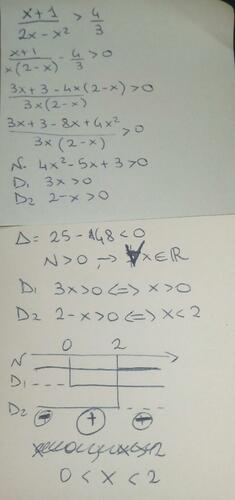 x+1 / 2x - x² > 4/3
x+1 / x(2-x) - 4/3 > 0
3x+3-4x(2-x) / 3x(2-x) > 0
3x+3-8x+4x² / 3x(2-x) > 0
N. 4x²-5x+3>0
D₁ 3x>0
D₂ 2-x>0
Δ= 25-48<0
N>0 → ∀x∈ℝ
D₁ 3x>0 <=> x>0
D₂ 2-x>0 <=> x<2
0 2
N
D₁
D₂
+
0 < x < 2